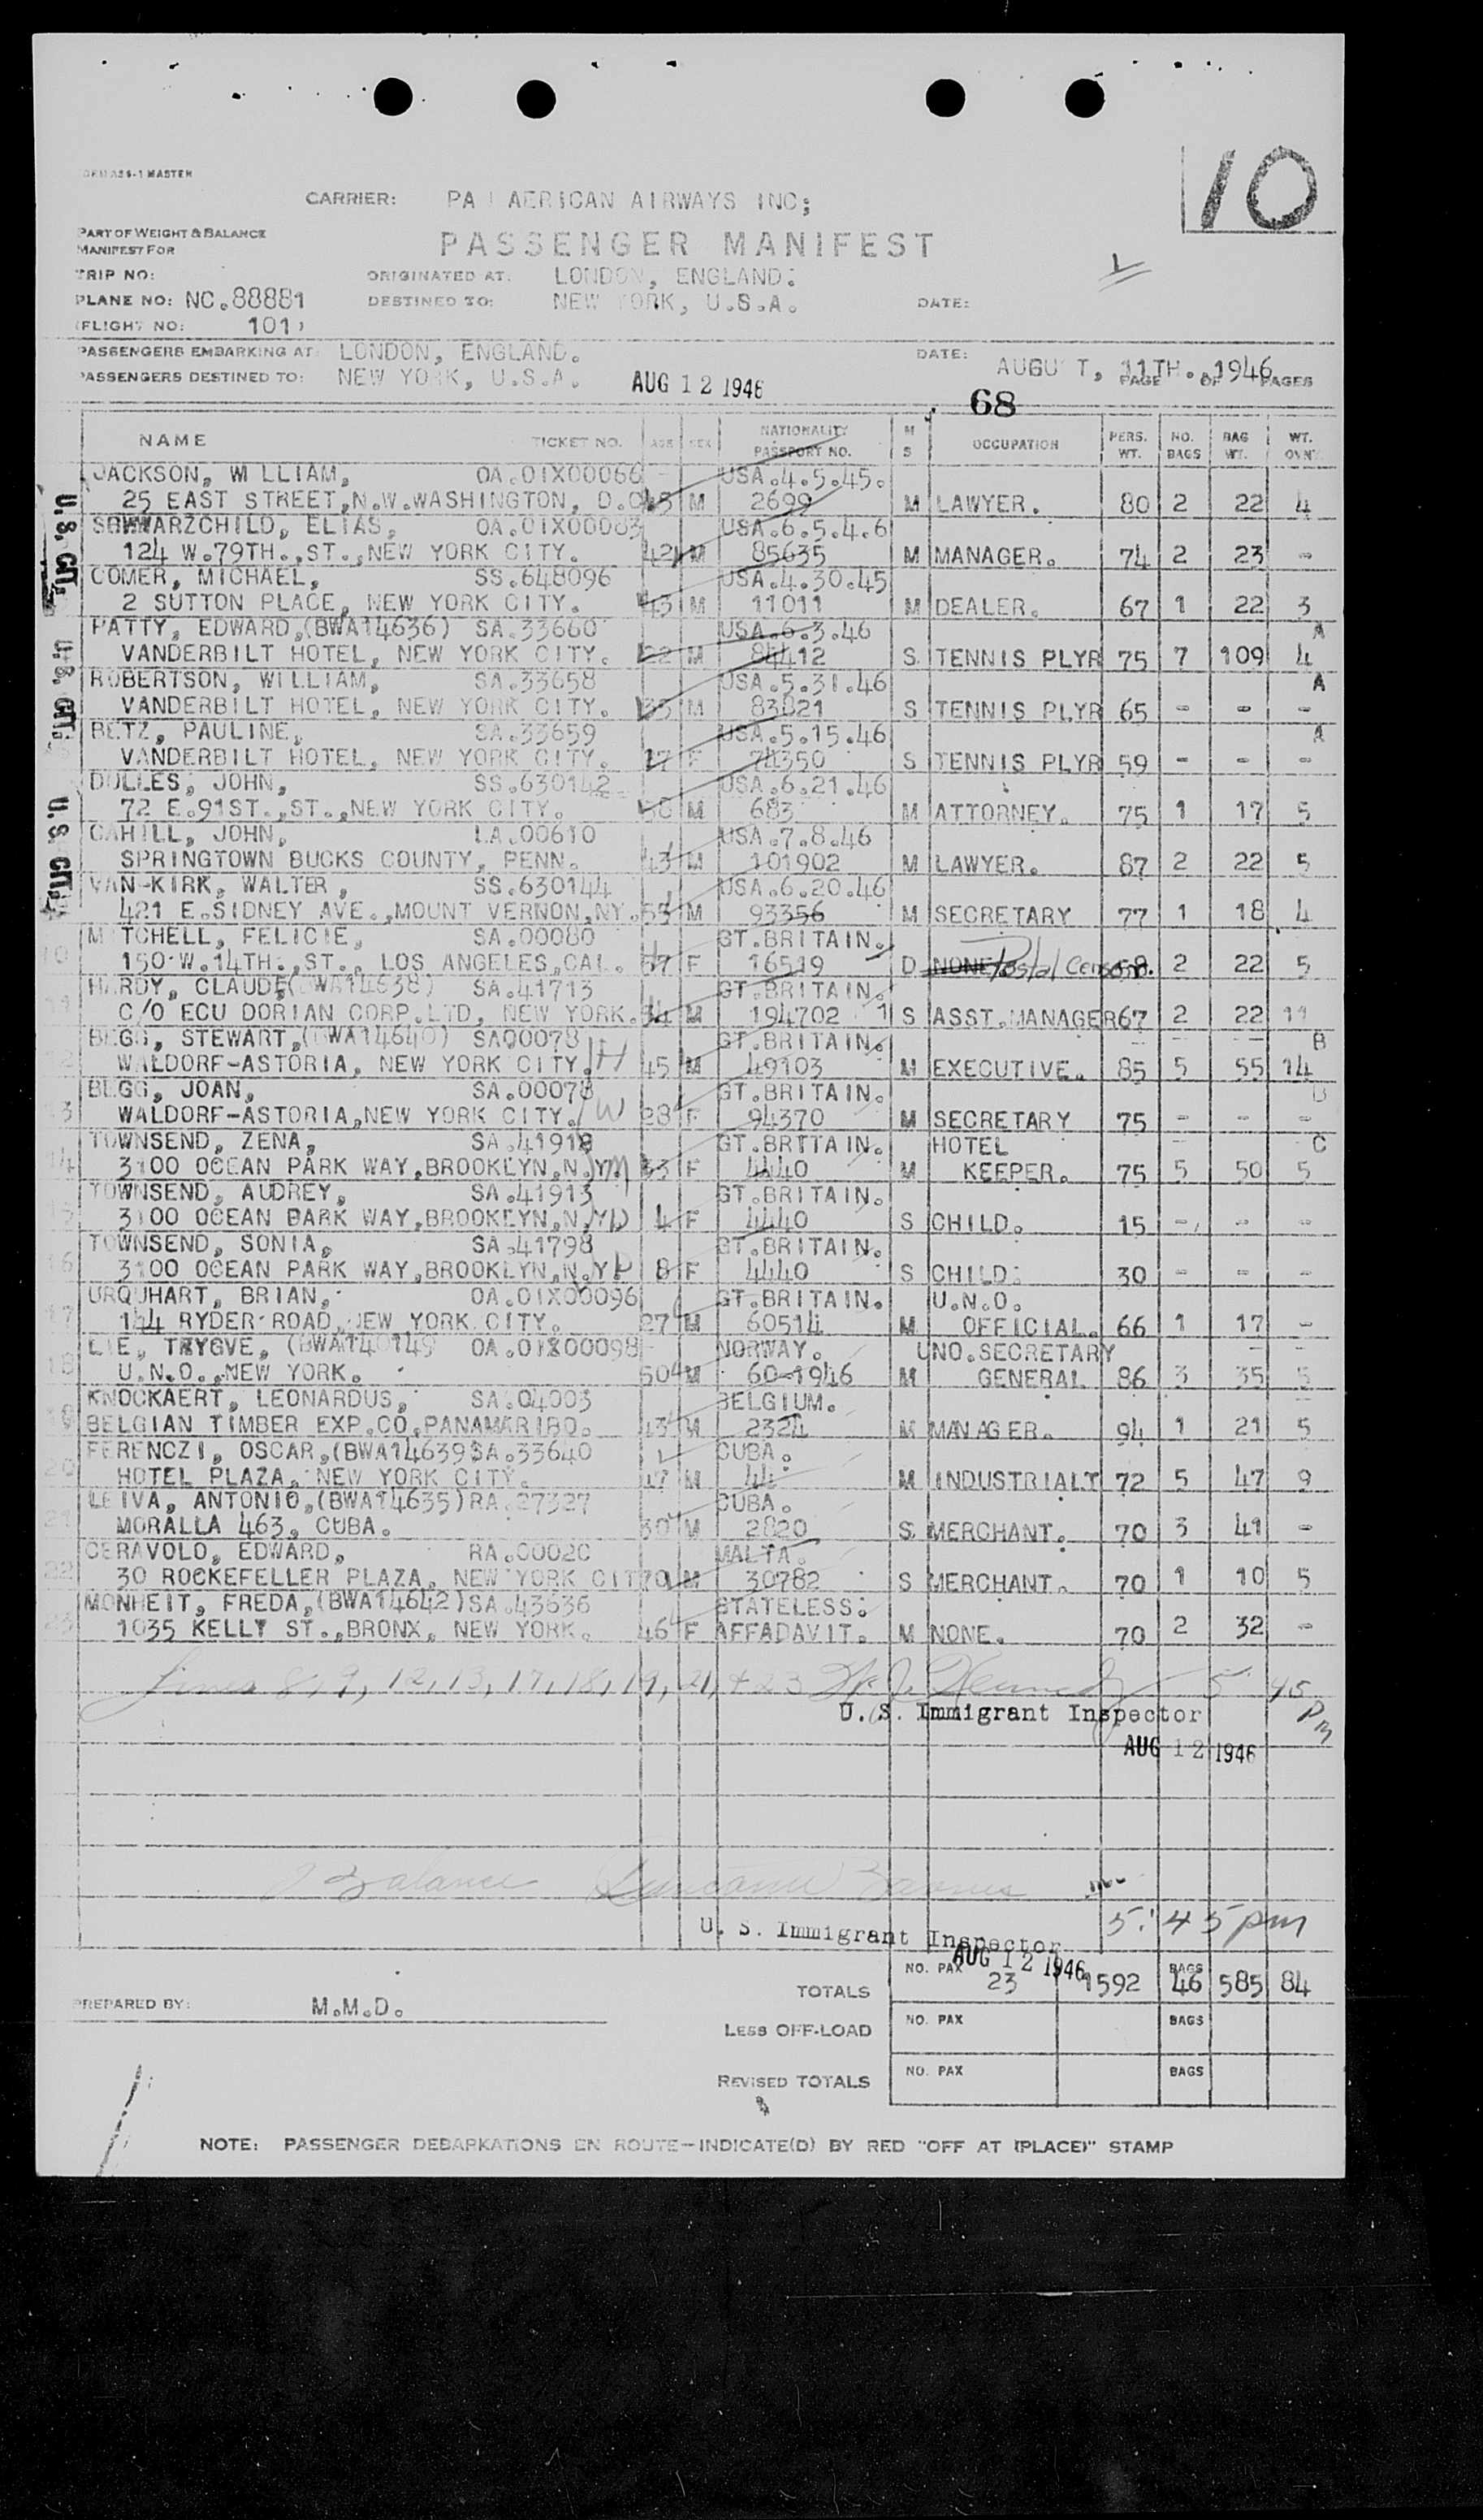 FORM AS 6-1 MASTER
10
CARRIER: PA AERICAN AIRWAYS INC;
PART OF WEIGHT & BALANCE
MANIFEST FOR
PASSENGER MANIFEST
TRIP NO: ORIGINATED AT: LONDON, ENGLAND:
PLANE NO: NC.88881 DESTINED TO: NEW YORK, U.S.A. DATE:
(FLIGHT NO: 101)
PASSENGERS EMBARKING AT: LONDON, ENGLAND. DATE: AUGU T, 11TH. 1946
PASSENGERS DESTINED TO: NEW YORK, U.S.A. AUG 12 1946 PAGE OF PAGES
68
NAME TICKET NO. AGE SEX NATIONALITY PASSPORT NO. M S OCCUPATION PERS. WT. NO. BAGS BAG WT. WT. OVWT.
JACKSON, WI LLIAM, OA.01X00066 USA.4.5.45.
25 EAST STREET,N.W.WASHINGTON, D.C M 2699 M LAWYER. 80 2 22 4
SCHWARZCHILD, ELIAS, OA.01X00083 USA.6.5.4.6
124 W.79TH.,ST.,NEW YORK CITY. 42 M 85635 M MANAGER. 74 2 23 -
COMER, MICHAEL, SS.648096 USA.4.30.45
2 SUTTON PLACE, NEW YORK CITY. 43 M 11011 M DEALER. 67 1 22 3
PATTY, EDWARD,(BWA14636) SA.33660 USA.6.3.46 A
VANDERBILT HOTEL, NEW YORK CITY. 22 M 84412 S TENNIS PLYR 75 7 109 4
ROBERTSON, WILLIAM, SA.33658 USA.5.31.46 A
VANDERBILT HOTEL, NEW YORK CITY. M 83821 S TENNIS PLYR 65 - - -
BETZ, PAULINE, SA.33659 USA.5.15.46 A
VANDERBILT HOTEL, NEW YORK CITY. 27 F 74350 S TENNIS PLYR 59 - - -
DULLES, JOHN, SS.630142 USA.6.21.46
72 E.91ST.,ST.,NEW YORK CITY. M 683 M ATTORNEY. 75 1 17 5
CAHILL, JOHN, LA.00610 USA.7.8.46
SPRINGTOWN BUCKS COUNTY, PENN. 43 M 101902 M LAWYER. 87 2 22 5
VAN-KIRK, WALTER, SS.630144 USA.6.20.46
421 E.SIDNEY AVE.,MOUNT VERNON,NY. 55 M 93356 M SECRETARY 77 1 18 4
10 MITCHELL, FELICIE, SA.00080 GT.BRITAIN.
150 W.14TH.,ST., LOS ANGELES,CAL. 57 F 16519 D NONE Postal Censor. 58 2 22 5
11 HARDY, CLAUDE(BWA14638) SA.41713 GT.BRITAIN.
C/O ECU DORIAN CORP.LTD, NEW YORK. 34 M 194702 1 S ASST.MANAGER 67 2 22 11
12 BEGG, STEWART,(BWA14640) SA00078 GT.BRITAIN. B
WALDORF-ASTORIA, NEW YORK CITY. H 45 M 49103 M EXECUTIVE. 85 5 55 14
13 BEGG, JOAN, SA.00078 GT.BRITAIN. B
WALDORF-ASTORIA,NEW YORK CITY. W 28 F 94370 M SECRETARY 75 - - -
14 TOWNSEND, ZENA, SA.41918 GT.BRITAIN. HOTEL C
3100 OCEAN PARK WAY,BROOKLYN,N.Y. M 33 F 4440 M KEEPER. 75 5 50 5
15 TOWNSEND, AUDREY, SA.41913 GT.BRITAIN.
3100 OCEAN PARK WAY,BROOKLYN,N.Y. D 4 F 4440 S CHILD. 15 - - -
16 TOWNSEND, SONIA, SA.41798 GT.BRITAIN.
3100 OCEAN PARK WAY,BROOKLYN,N.Y. D 8 F 4440 S CHILD. 30 - - -
17 URQUHART, BRIAN, OA.01X00096 GT.BRITAIN. U.N.O.
144 RYDER ROAD,NEW YORK CITY. 27 M 60514 M OFFICIAL. 66 1 17 -
18 LIE, TRYGVE, (BWA140149 OA.01X00098 NORWAY. UNO.SECRETARY
U.N.O.,NEW YORK. 50 M 60-1946 M GENERAL 86 3 35 5
19 KNOCKAERT, LEONARDUS, SA.04003 BELGIUM.
BELGIAN TIMBER EXP.CO.PANAMARIBO. 43 M 2324 M MANAGER. 94 1 21 5
20 FERENCZI, OSCAR,(BWA14639 SA.33640 CUBA.
HOTEL PLAZA, NEW YORK CITY. 47 M 44 M INDUSTRIALT 72 5 47 9
21 LEIVA, ANTONIO,(BWA14635)RA.27327 CUBA.
MORALLA 463, CUBA. 30 M 2820 S MERCHANT. 70 3 41 -
22 CERAVOLO, EDWARD, RA.00020 MALTA.
30 ROCKEFELLER PLAZA, NEW YORK CIT 70 M 30782 S MERCHANT. 70 1 10 5
23 MONHEIT, FREDA,(BWA14642)SA.43636 STATELESS.
1035 KELLY ST.,BRONX, NEW YORK. 46 F AFFADAVIT. M NONE. 70 2 32 -
U.S. CIT.
U.S. CIT.
U.S. CIT.
Lines 8, 9, 12, 13, 17, 18, 19, 21, + 23 5 45 Pm
U. S. Immigrant Inspector
AUG 12 1946
Balance
5:45 pm
U. S. Immigrant Inspector
AUG 12 1946
TOTALS NO. PAX 23 1592 BAGS 46 585 84
PREPARED BY: M.M.D.
LESS OFF-LOAD NO. PAX BAGS
REVISED TOTALS NO. PAX BAGS
NOTE: PASSENGER DEBARKATIONS EN ROUTE-INDICATE(D) BY RED "OFF AT (PLACE)" STAMP